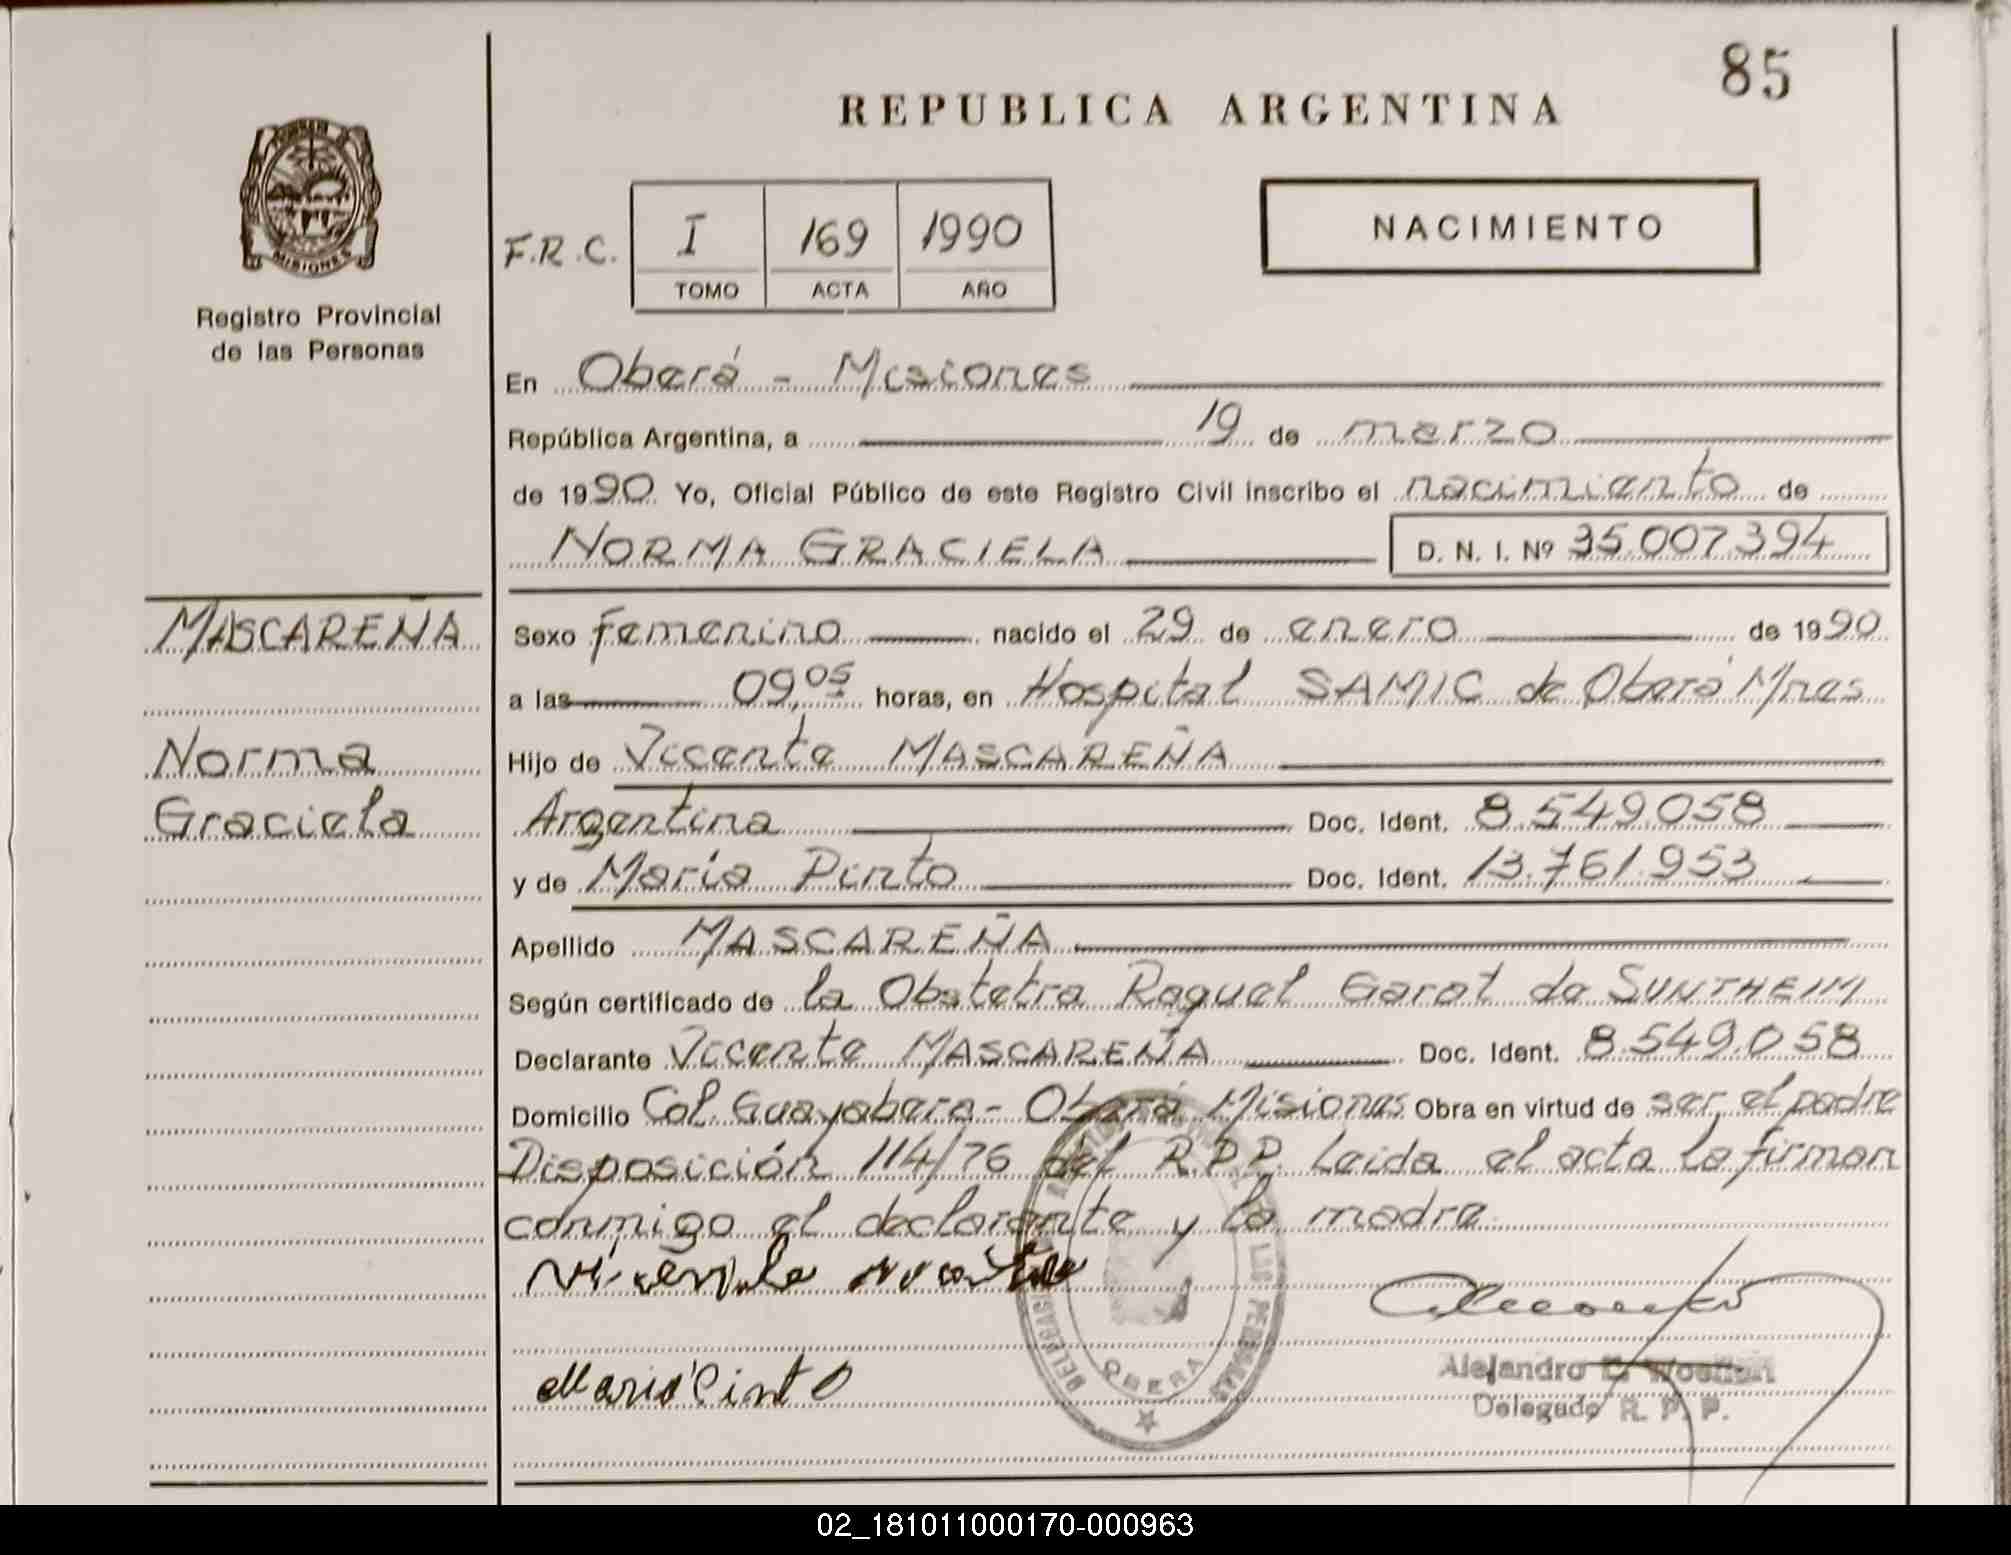 85
REPUBLICA ARGENTINA
MISIONES
Registro Provincial
de las Personas
F.R.C. I 169 1990
TOMO ACTA AÑO
NACIMIENTO
En Oberá - Misiones
República Argentina, a 19 de marzo
de 1990 Yo, Oficial Público de este Registro Civil inscribo el nacimiento de
NORMA GRACIELA D. N. I. Nº 35.007.394
MASCAREÑA
Norma
Graciela
Sexo femenino nacido el 29 de enero de 1990
a las 09,05 horas, en Hospital SAMIC de Oberá Mnes
Hijo de Vicente MASCAREÑA
Argentina Doc. Ident. 8.549.058
y de María Pinto Doc. Ident. 13.761.953
Apellido MASCAREÑA
Según certificado de la Obstetra Raquel Garat de SUNTHEIM
Declarante Vicente MASCAREÑA Doc. Ident. 8.549.058
Domicilio Col. Guayabera - Oberá Misiones Obra en virtud de ser el padre
Disposición 114/76 del R.P.P. Leida el acta la firman
conmigo el declarante y la madre.
Maria Pinto
DELEGACION LAS PERSONAS
OBERA
Alejandro E.
Delegado R. P. P.
02_181011000170-000963